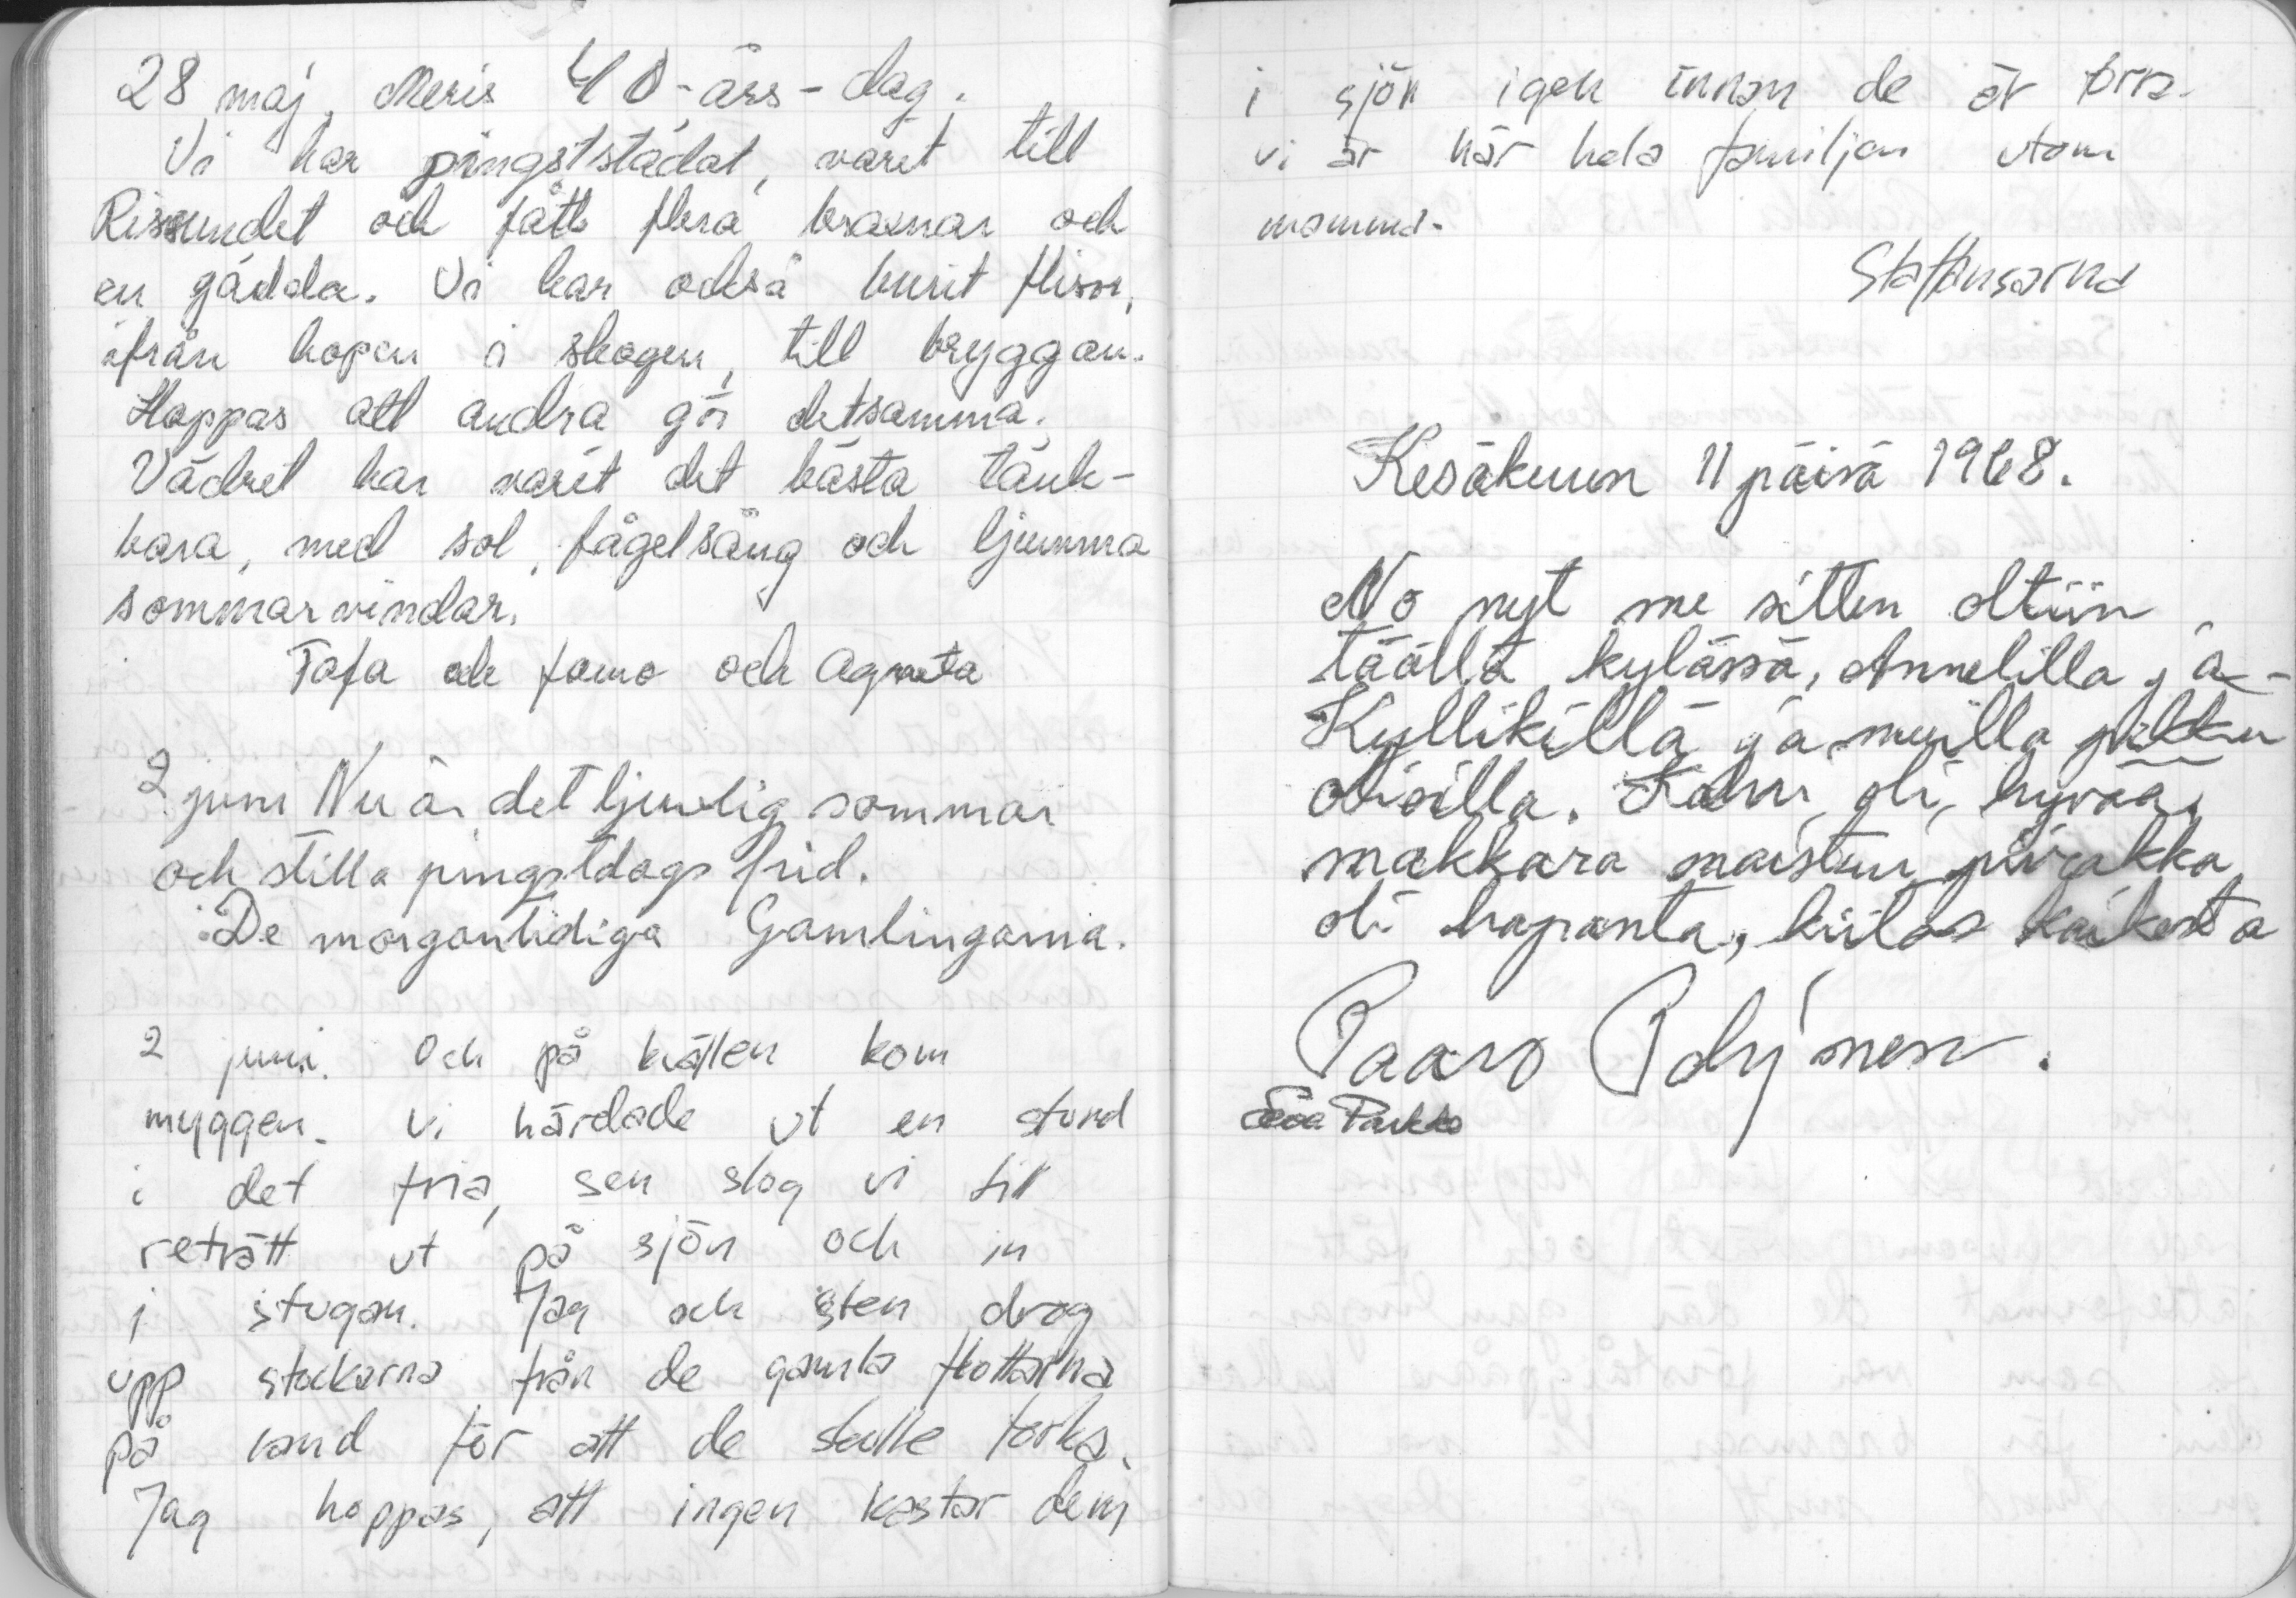 28 maj. Meris 40-års-dag.
Vi har pingststädat, varit till
Rissundet och fått flera braxnar och
en gädda. Vi har också burit flisor,
ifrån hopen i skogen, till bryggan.
Hoppas att andra gör detsamma.
Vädret har varit det bästa tänk-
bara, med sol, fågelsång och ljumma
sommarvindar.
Fafa och famo och Agneta
2 juni Nu är det ljuvlig sommar
och stilla pingstdags frid.
De morgontidiga Gamlingarna.
2 juni. Och på kvällen kom
myggen. Vi härdade ut en stund
i det fria, sen slog vi till
reträtt ut på sjön och in
i stugan. Jag och Sten drog
upp stockarna från de gamla flottarna
på land för att de skulle torka.
Jag hoppas, att ingen kastar dem
i sjön igen innan de är torra.
Vi är här hela familjen utom
mamma.
Staffansarna
Kesäkuun 11 päivä 1968.
No nyt me sitten oltiin
täällä kylässä, Annelilla ja
Kyllikillä ja muilla pikku
olioilla. Kahvi oli hyvää,
makkara maistui, piirakka
oli hapanta, kiitos kaikesta
Paavo